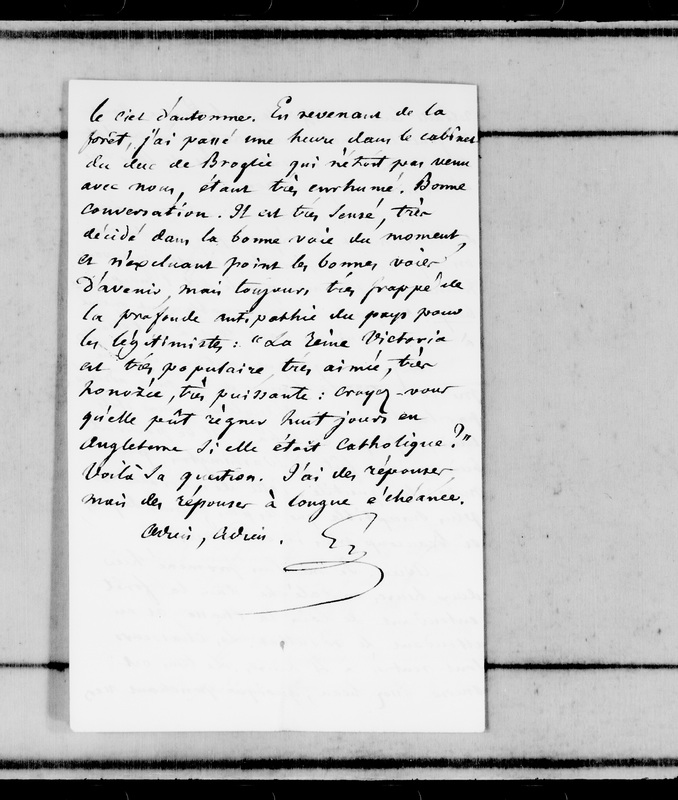 le ciel d'automne. En revenant de la
forêt, j'ai passé une heure dans le cabinet
du duc de Broglie qui n'étoit pas venu
avec nous, étant très enrhumé. Bonne
conversation. Il est très sensé, très
décidé dans la bonne voie du moment,
et n'excluant point les bonnes voies
d'avenir, mais toujours très frappé de
la profonde antipathie du pays pour
les légitimistes : "La reine Victoria
est très populaire, très aimée, très
honorée, très puissante : croyez-vous
qu'elle pût régner huit jours en
Angleterre si elle étoit catholique ?"
Voilà sa question. J'ai des réponses,
mais des réponses à longue échéance.
Adieu, Adieu.